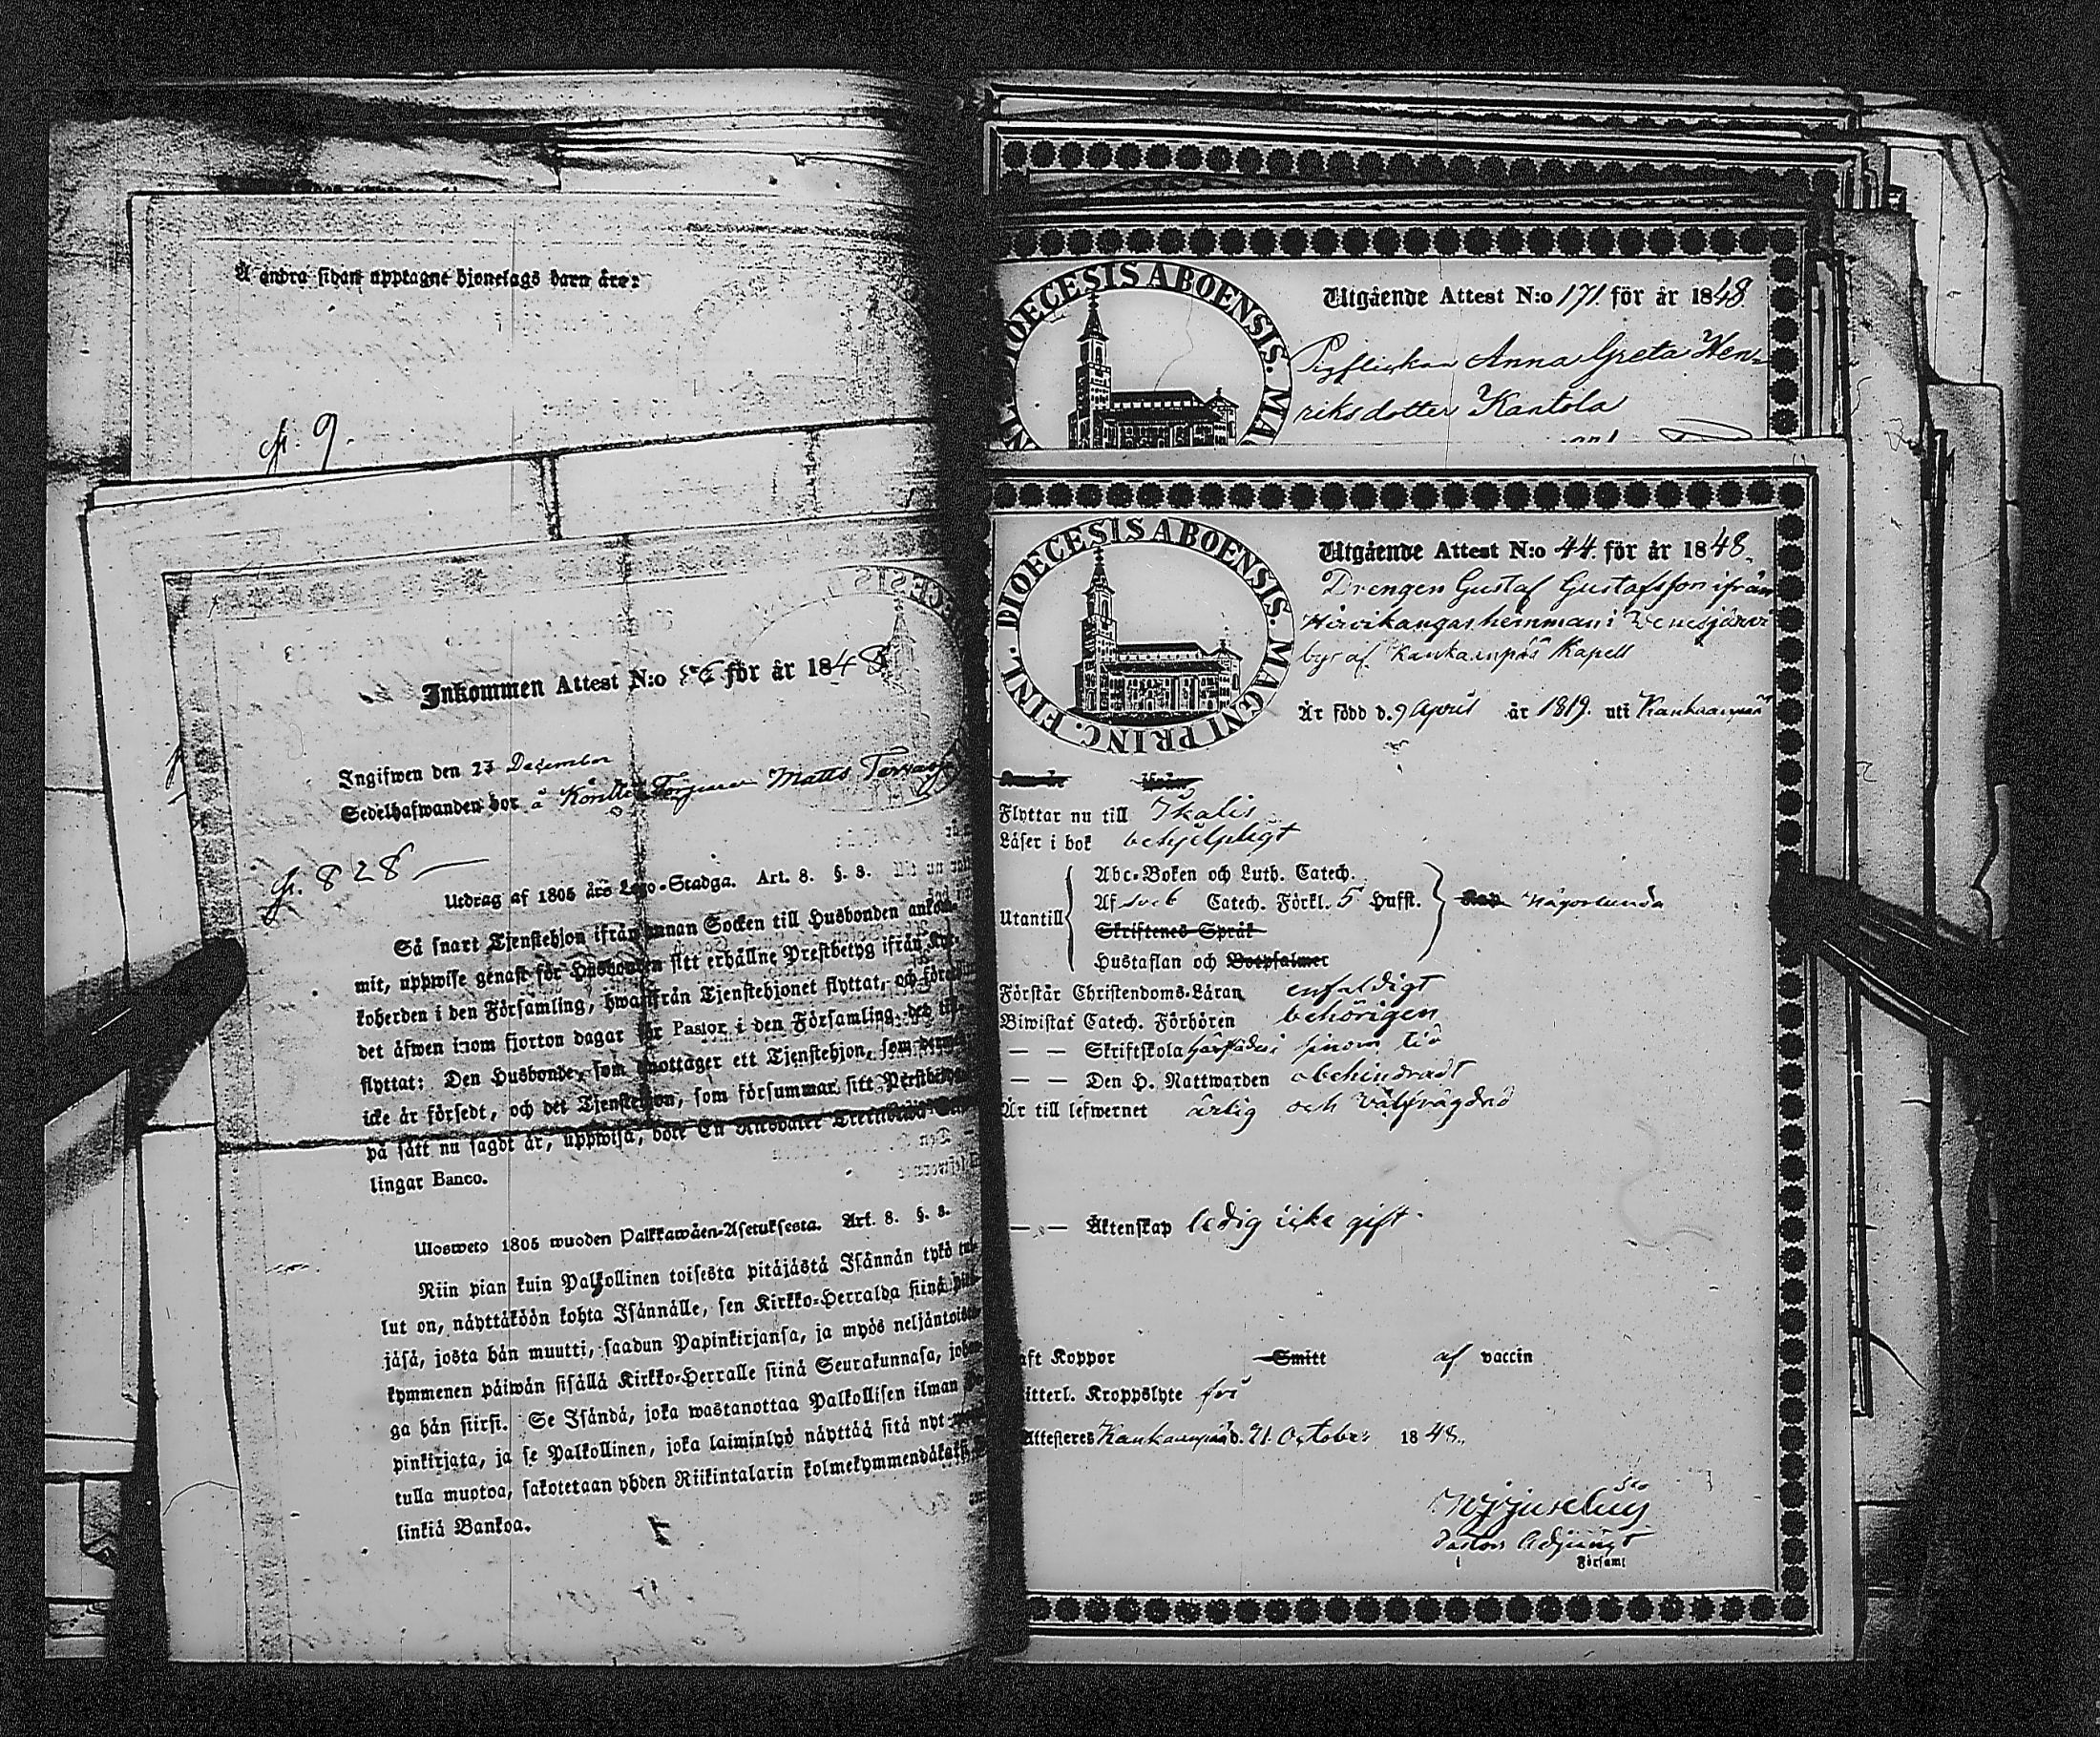 Å andra sidan upptagne hjonelags barn äro:
fr. 9.
Inkommen Attest N:o 56 för år 1848
Ingifwen den 27 December
Sedelhafwanden bor å Matts
fr. 828
Utdrag af 1805 års Lego-Stadga. Art. 8. §. 8.
Så snart Tjenstehjon ifrån annan Socken till Husbonden ankom-
mit, uppwise genast för Husbonden sitt erhållne Prestbetyg ifrån Kyr-
koherden i den Församling, hwarifrån Tjenstehjonet flyttat, och
det äfwen inom fjorton dagar för Pastor i den Församling, det
flyttat: Den Husbonde, som emottager ett Tjenstehjon, som
icke är försedt, och det Tjenstehjon, som försummar sitt
på sätt nu sagdt är, uppwisa, böte En Riksdaler Trettiotwå
lingar Banco.
Ulosweto 1805 wuoden Palkkawäen-Asetuksesta. Art. 8. §. 8.
Niin pian kuin Palkollinen toisesta pitäjästä Isännän tykö tul-
lut on, näyttäköön kohta Isännälle, sen Kirkko-Herralda siinä pitä-
jäsä, josta hän muutti, saadun Papinkirjansa, ja myös neljäntoista-
kymmenen päiwän sisällä Kirkko-Herralle siinä Seurakunnasa, johon-
ga hän siirsi. Se Isändä, joka wastanottaa Palkollisen ilman
pinkirjata, ja se Palkollinen, joka laiminlyö näyttää sitä nyt
tulla muotoa, sakotetaan yhden Riikintalarin kolmekymmendäkaksi
linkiä Bankoa.
DIOECESIS ABOENSIS. MAG
Utgående Attest N:o 171. för år 1848
Pigflickan Anna Greta Hen-
riksdotter Kantola
DIOECESIS ABOENSIS. MAGNI PRINC. FINL.
Utgående Attest N:o 44. för år 1848.
Drengen Gustaf Gustafsson ifrån
Hirvikangas hemman i Venesjärvi
by af Kankaanpää Kapell
Är född d. 9 April år 1819. uti Kankaanpää
Flyttar nu till Ikalis
Läser i bok behjelpligt
Utantill
Abc-Boken och Luth. Catech.
Af Sveb Catech. Förkl. 5 Hufst.
Någorlunda
Skriftenes Språk
Hustaflan och Botpsalmer
Förstår Christendoms-Läran enfaldigt
Biwistat Catech. Förhören behörigen
— — Skriftskola
— — Den H. Nattwarden obehindradt
Är till lefwernet ärlig och välfrägdad
— — Äktenskap ledig icke gift
aft Koppor Smitt af vaccin
itterl. Kroppslyte fri
Attesteres Kankaanpää d. 21. October 1848.
Pastors Adjunct
i Församl